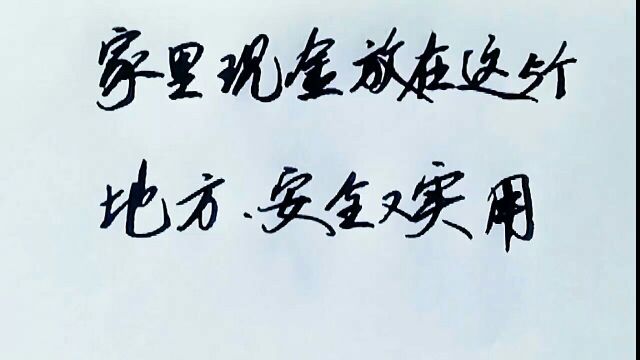 家里现金放在这5个
地方、安全又实用